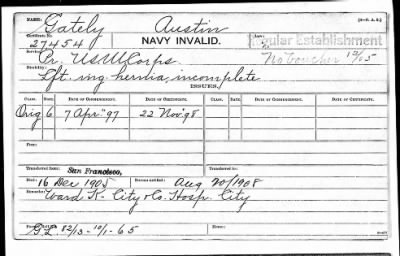 NAME: Gately Austin
Certificate No. 27454 NAVY INVALID. Regular Establishment
Rank: Pr. U.S.M. Corps. No Voucher 12/05
Disability: Lft. ing. hernia, incomplete
ISSUES.
CLASS. RATE. DATE OF COMMENCEMENT. DATE OF CERTIFICATE. CLASS. RATE. DATE OF COMMENCEMENT. DATE OF CERTIFICATE.
Orig 6 7 Apr. '97 22 Nov '98
From:
Transferred from: San Francisco,
Died: 16 Dec 1905 Bureau notified: Aug 20/1908
Remarks: Ward K- City & Co. Hosp. City
G.L. 82/3-10/1-65